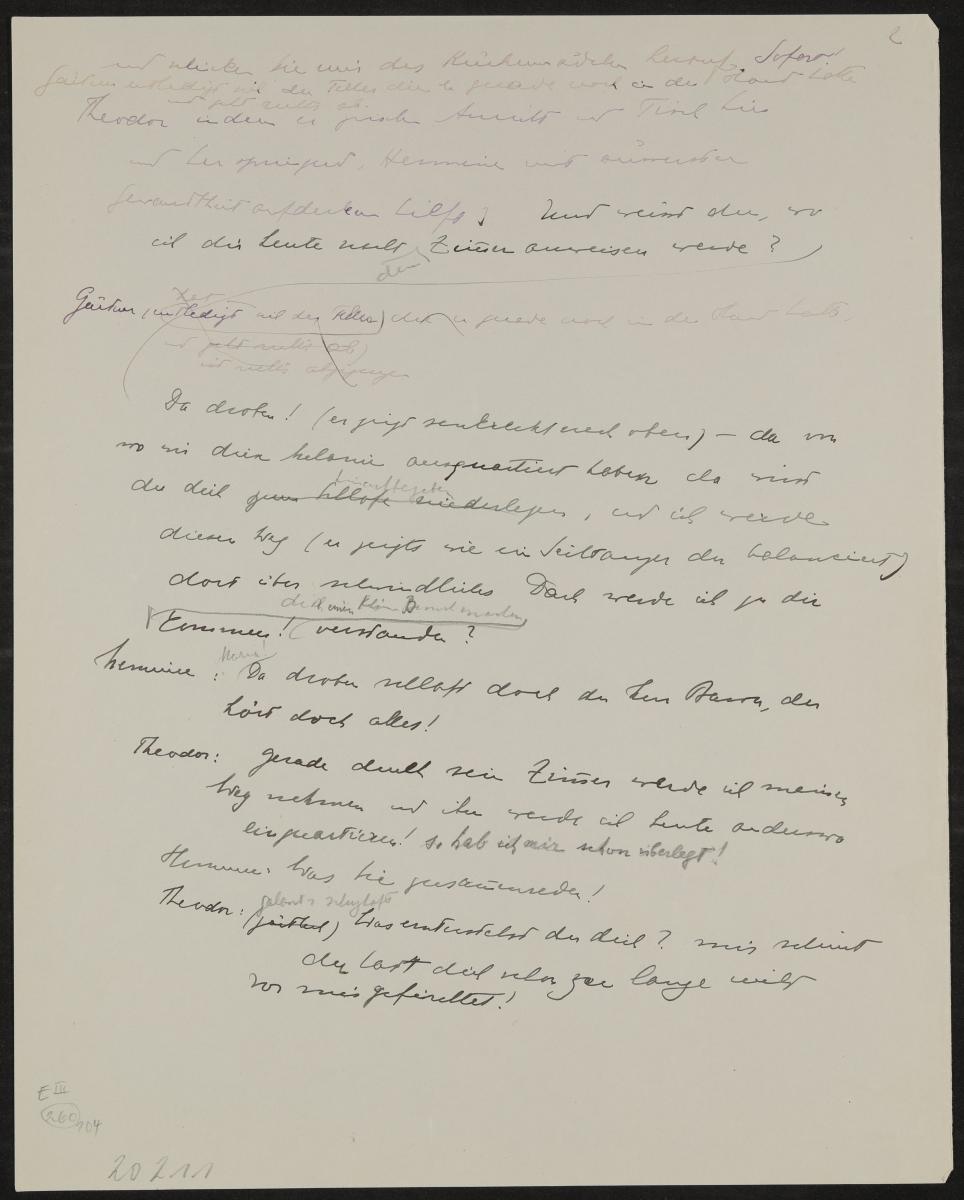 2
und schicken Sie mir das Küchenmädchen herauf. Sofort!
Gärtner entledigt sich der Teller die er gerade noch in der Hand hatte
und geht rechts ab.
Theodor indem er zum Tisch hin
und herspringend, Hermine mit äusserster
Gewandtheit aufdecken hilft) Und weisst du, wo
ich dir heute nacht Zimmer anweisen werde?
dein
Gärtner (entledigt sich der Teller) die er gerade noch in der Hand hatte,
und geht rechts ab)
ist rechts abgegangen
Da droben! (er zeigt senkrecht nach oben) – da von
wo wir dein Melanie ausquartiert haben da wirst
du dich zum Schlafe niederlegen, und ich werde
hinaufbegeben
diesen Weg (er zeigts wie ein Seiltänzer der balanciert)
dort über schwindliches Dach werde ich zu dir
dir einen kleinen Besuch machen
kommen! verstanden?
Hermine: Da droben schlaft doch der Herr Baron, der
hört doch alles!
Theodor: Gerade durch sein Zimmer werde ich meinen
Weg nehmen und ihn werde ich heute anderswo
einquartieren! so hab ich mir schon überlegt!
Hermine: Was Sie zusammreden!
Theodor: (zärtlich) Was unterstehst du dich? mir scheint
du hast dich schon zu lange nicht
vor mir gefürchtet!
E III
260
104
20211